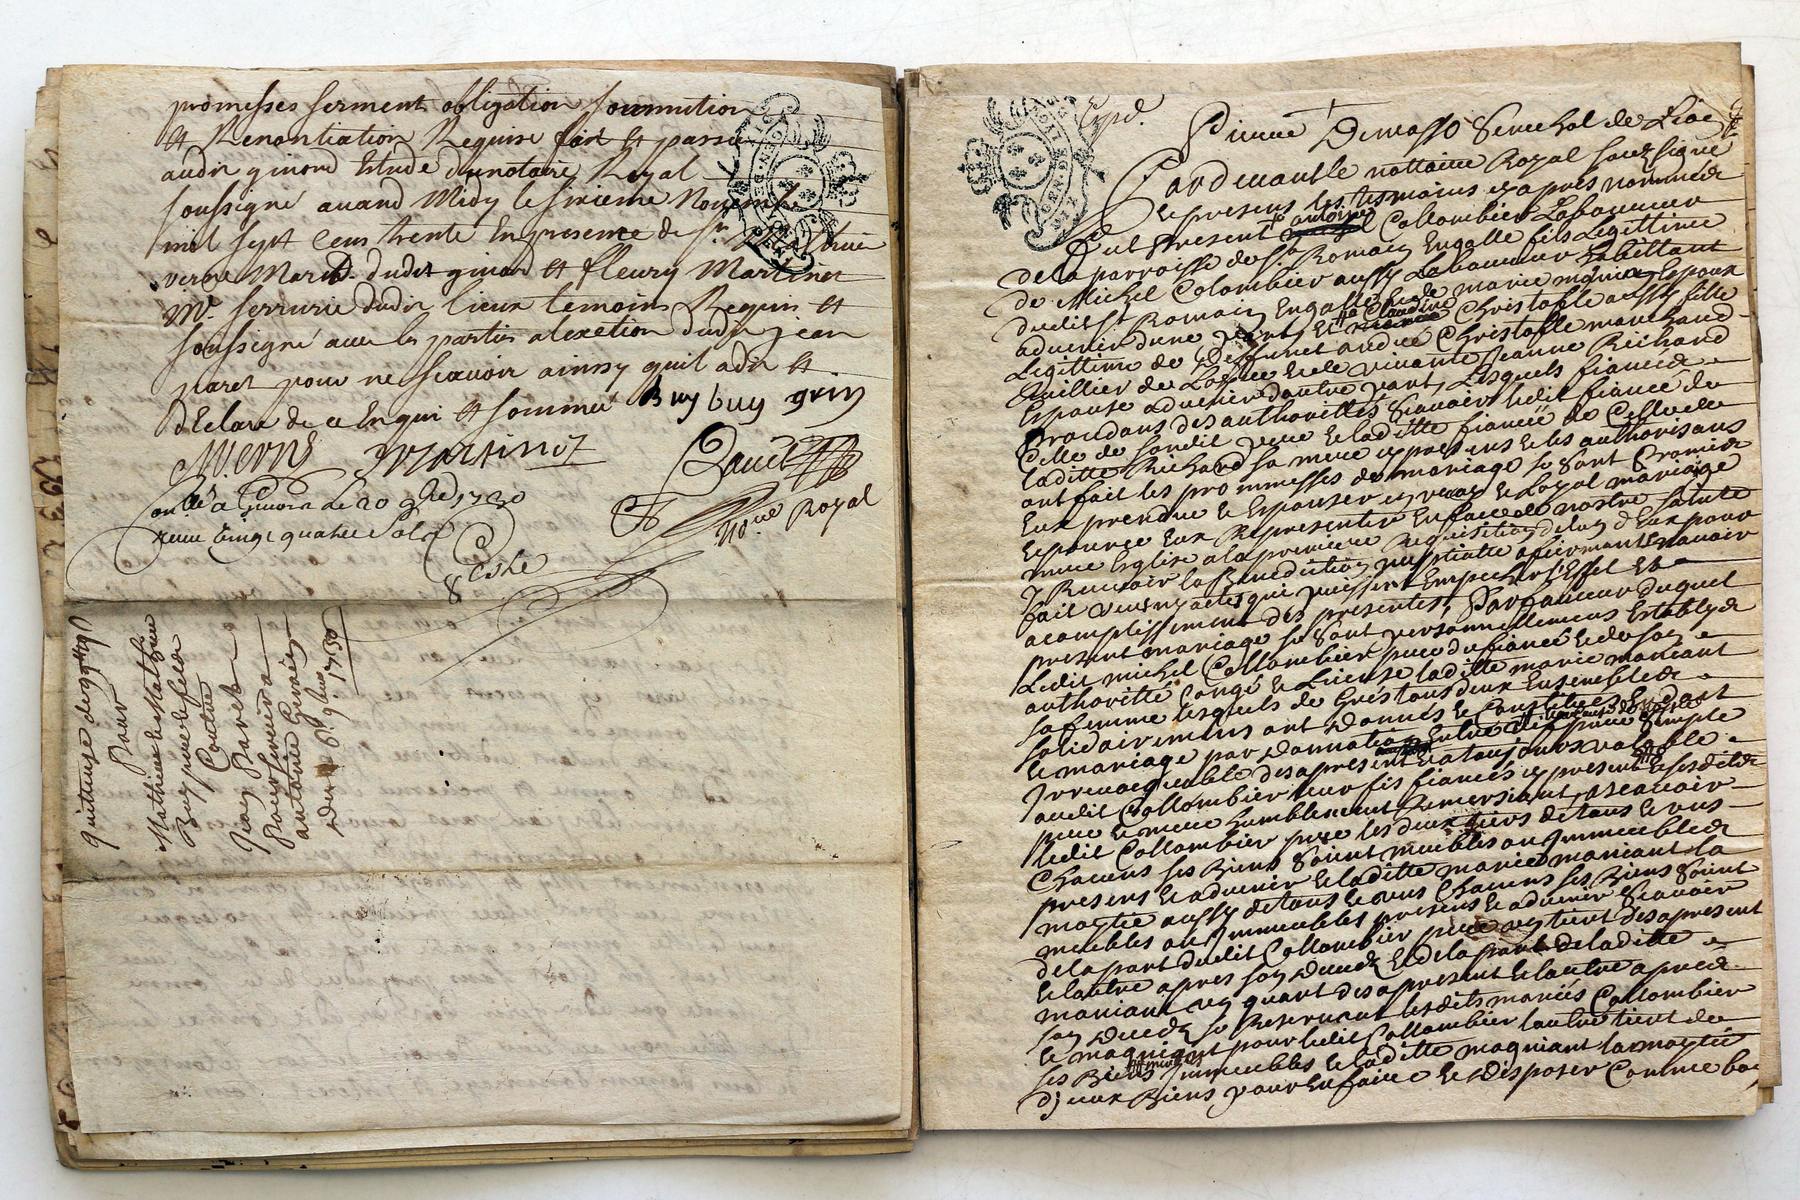 promesses serment obligation soummition
et Renontiation Requise fait et passé
audit girord Estude dunotaire Royal
soussigné avand Midy le sixieme Novembre
mil sept Cens trente En presence de Sr
verne Mard. dudit girord et fleury Martinet
Mr. serrurie dudit lieux temoins Requis et
soussigné avec les parties alexetion dudit jean
paret pour ne scavoir ainsy quil a dit et
déclaré de ce Enquis et sommé Buy buy
Verne Martinet
Royal
a le 20 9bre 1730
vingt quatre Sols
quittance de
pour
Mathieu et Mathieu
Buy pere et fils
Contre
Jean Paret
antoinne Gervais
du 6e 9bre 1730
Expd.
Pierre Demasso Senechal de Lion
Pardevant le nottaire Royal soubsigné
et presens les tesmoins cy apres nommés
fut present antoine Collombier Laboureur
de la parroisse de St. Romain Engalle fils Legittime
de Michel Colombier aussy Laboureur habittant
dudit St Romain Engalle et de marie Espoux
advenir dune part, et Claudine Christofle aussy fille
Legittime de deffunct andré Christofle marchand
Espouse advenir dautre part, Lesquels fiancés
procedans des authorités scavoir ledit fiancé de
Celle de sondit pere et laditte fiancée de Celle de
laditte Richard sa mere cy presens et les authorisans
ont fait les prommesses de mariage se sont Promis
Eux prendre et Espouser en vray et Loyal mariage
et pource Eux Representer En face de nostre sainte
mere Eglise a la premiere Requisition de lun d'Eux pour
y Recevoir la Benediction nuptialle afirmant navoir
fait qui puissent Empecher l'Effet et
acomplissement des presentes, Par faveur duquel
present mariage se sont personnellement Establys
Ledit michel Collombier pere du fiancé et de son
authorité congé et license laditte marie maniant
sa femme lesquels de Gré tous deux Ensemble
solidairement ont Donnés et Constitués En dost
et mariage par Donnation Entre vifs pure simple
Irrevocquable des apresent et a toujours valable
audit Collombier leur fils fiancé cy present et sesdits
pere et mere humblement Remersiant, ascavoir
ledit Collombier pere les deux tiers de tous et uns
Chacuns ses Biens soient meubles ou Immeubles
presens et advenir et laditte marie maniant la
moytié aussy de tous et uns Chacuns ses Biens soient
meubles ou Immeubles presens et advenir scavoir
de la part dudit Collombier pere un tiers des apresent
et lautre apres son decedz et de la part de laditte
maniant un quart des apresent et lautre apres
son decedz se Reservant lesdits mariés Collombier
et magniant pour ledit Collombier lautre tiers de
ses Biens Immeubles et laditte magniant la moytié
d'iceux Biens pour En faire et Disposer Comme bon